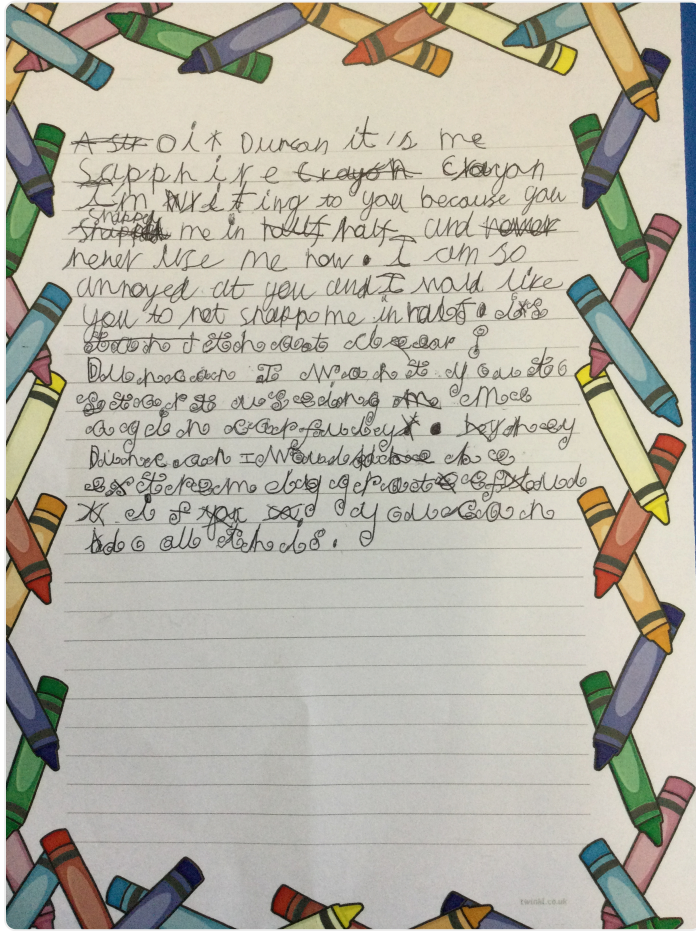 Oi Duncan it's me
Sapphire Crayon Crayon
I'm writing to you because you
snapped me in half half and never
never use me now. I am so
annoyed at you and I would like
you to not snapp me in half.
Duncan I want you to
start useing me me
again
Duncan I would be
extremely greatefud
if you you can
do all this.
twinkl.co.uk